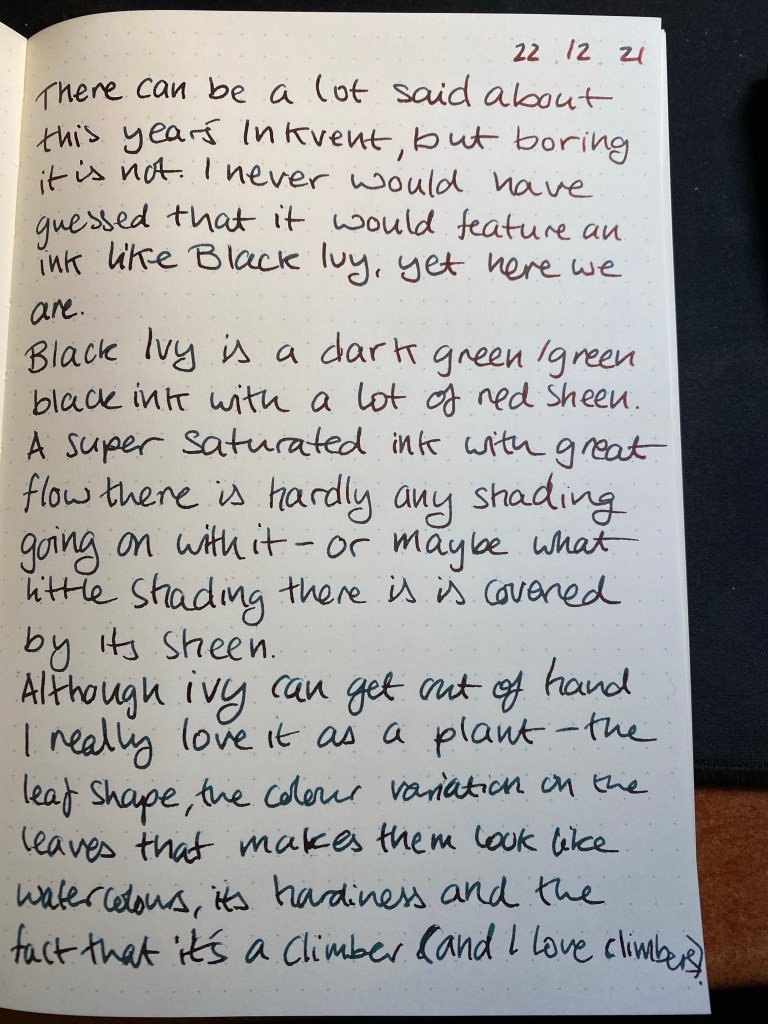 22 12 21
There can be a lot said about
this year's Inkvent, but boring
it is not. I never would have
guessed that it would feature an
ink like Black Ivy, yet here we
are.
Black Ivy is a dark green/green
black ink with a lot of red sheen.
A super saturated ink with great
flow there is hardly any shading
going on with it - or maybe what
little shading there is is covered
by its sheen.
Although ivy can get out of hand
I really love it as a plant - the
leaf shape, the colour variation on the
leaves that makes them look like
watercolours, its hardiness and the
fact that it's a climber (and I love climbers).